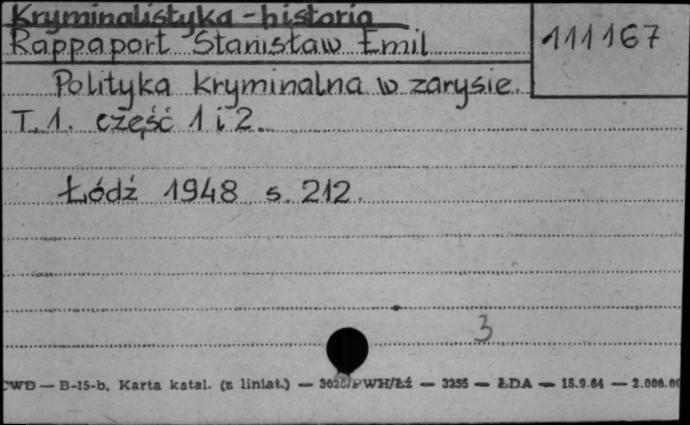 Kryminalistyka - historia
Rappaport Stanisław Emil
111167
Polityka kryminalna w zarysie.
T. 1. część 1 i 2.
Łódź 1948 s. 212.
3
CWD — B-15-b, Karta katal. (z liniat.) — /PWH/Łź — 3255 — ŁDA — 15.9.64 — 2.000.00